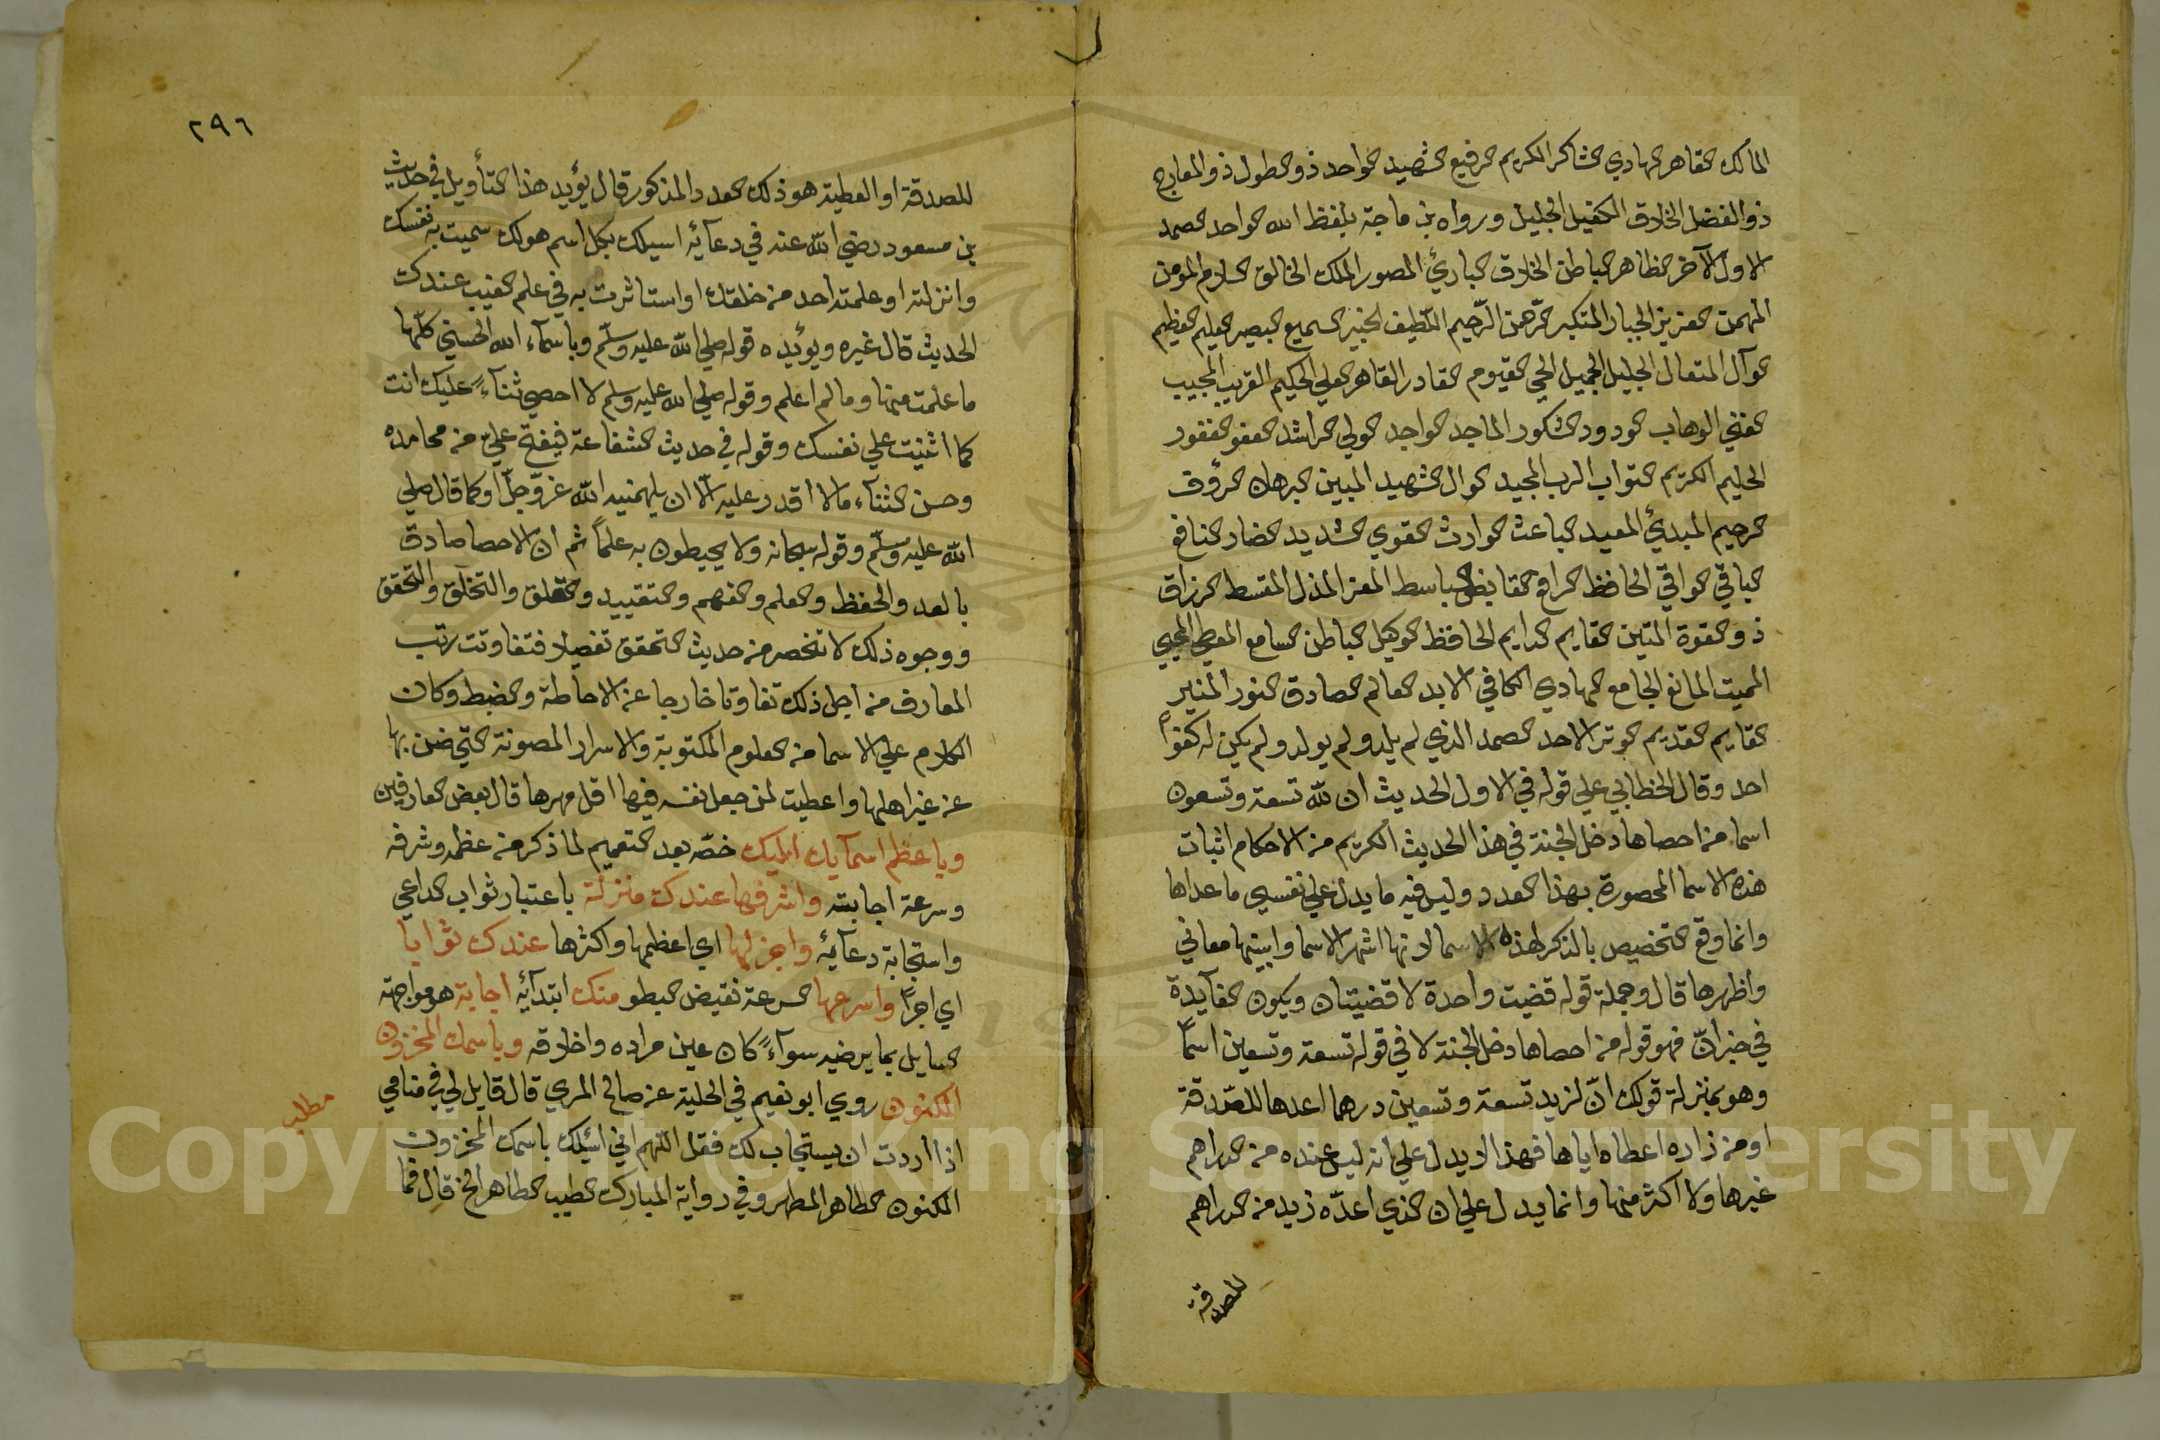 المالك القاهر الهادي الشاكر الكريم الرفيع الشهيد الواحد ذو الطول ذو المعارج
ذو الفضل الخلاق الكفيل الجليل ورواه بن ماجة بلفظ الله الواحد الصمد
الاول الآخر الظاهر الباطن الخلاق البارئ المصور الملك الخالق السلام المومن
المهمن العزيز الجبار المتكبر الرحمن الرحيم اللطيف الخبير السميع البصير العليم العظيم
الوآل المتعال الجليل الجميل الحي القيوم القادر القاهر العلي الحكيم القريب المجيب
الغني الوهاب الودود الشكور الماجد الواجد الولي الراشد العفو الغفور
الحليم الكريم التواب الرب المجيد الوال الشهيد المبين البرهان الرؤف
الرحيم المبدئ المعيد الباعث الوارث القوي الشديد الضار النافع
الباقي الواقي الحافظ الرافع القابض الباسط المعز المذل المقسط الرزاق
ذو القوة المتين القايم الدايم الحافظ الوكيل الباطن السامع المعطي المحيي
المميت المانع الجامع الهادي الكافي الابد العالم الصادق النور المنير
القايم القديم الوتر الاحد الصمد الذي لم يلد ولم يولد ولم يكن له كفوا
احد وقال الخطابي علي قوله في الاول الحديث ان لله تسعة وتسعون
اسما من احصاها دخل الجنة في هذا الحديث الكريم من الاحكام اثبات
هذه الاسما المحصورة بهذا العدد وليس فيه ما يدل علي نفسي ما عداها
وانما وقع التخصيص بالذكر لهذه الاسما لانها اشهر الاسما وابينها معاني
واظهرها قال وجملة قوله قضيت واحدة لا قضيتان ويكون الفآيدة
في خبر انّ فهو قوله من احصاها دخل الجنة لا في قوله تسعة وتسعين اسمًا
وهو بمنزلة قولك انّ لزيد تسعة وتسعين درهما اعدها للصّدقة
او من زاره اعطاه اياها فهذا لا يدل علي انه ليس عنده من الدراهم
غيرها ولا اكثر منها وانما يدل علي ان الذي اعدّه زيد من الدراهم
للصدقة
٢٩٦
للصدقة او العطية هو ذلك العدد المذكور قال يؤيد هذا التأويل في حديث
بن مسعود رضي الله عنه في دعآئه اسيلك بكل اسم هو لك سميت به نفسك
وانزلته او علمته احد من خلقك او استاثرت به في علم الغيب عندك
الحديث قال غيره ويؤيده قوله صلي الله عليه وسلم وباسمآء الله الحسني كلها
ما علمت منها وما لم اعلم وقوله صلي الله عليه وسلم لا احصي ثنآءً عليك انت
كما اثنيت علي نفسك وقوله في حديث الشفاعة فيفتح عليّ من محامده
وحسن الثنآء ما لا اقدر عليه الّا ان يلهمنيه الله عزّ وجلّ او كما قال صلي
الله عليه وسلّم وقوله سبحانه ولا يحيطون به علماً ثم ان الاحصا صادق
بالعد والحفظ والعلم والفهم والتقييد والتعلق والتخلق والتحقق
ووجوه ذلك لا تنحصر من حديث التحقق تفصيلا فتفاوتت رتب
المعارف من اجل ذلك تفاوتا خارجا عن الاحاطة والضبط وكان
الكلام علي الاسما من العلوم المكتوبة والاسرار المصونة التي ضن بها
عن غير اهلها واعطيت لمن جعل نفسه فيها اقل مهرها قال بعض العارفين
وباعظم اسمآيك اليك خصّه بعد التعميم لما ذكر من عظمه وشرفه
وسرعة اجابته واشرفها عندك منزلة باعتبار ثواب الداعي
واستجابة دعآئه واجزلها اي اعظمها واكثرها عندك ثوابا
اي اجرًا واسرعها السرعة نقيض البطو منك ابتدآئه اجابة هو مواجهة
السايل بما يرضيه سوآءً كان عين مراده واخلافه وباسمك المخزون
المكنون روي ابو نعيم في الحلية عن صالح المري قال قايل لي في منامي
مطلب
اذا اردت ان يستجاب لك فقل اللهم اني اسئلك باسمك المخزون
المكنون الطاهر المطهر وفي رواية المبارك الطيب الطاهر الخ قال فما